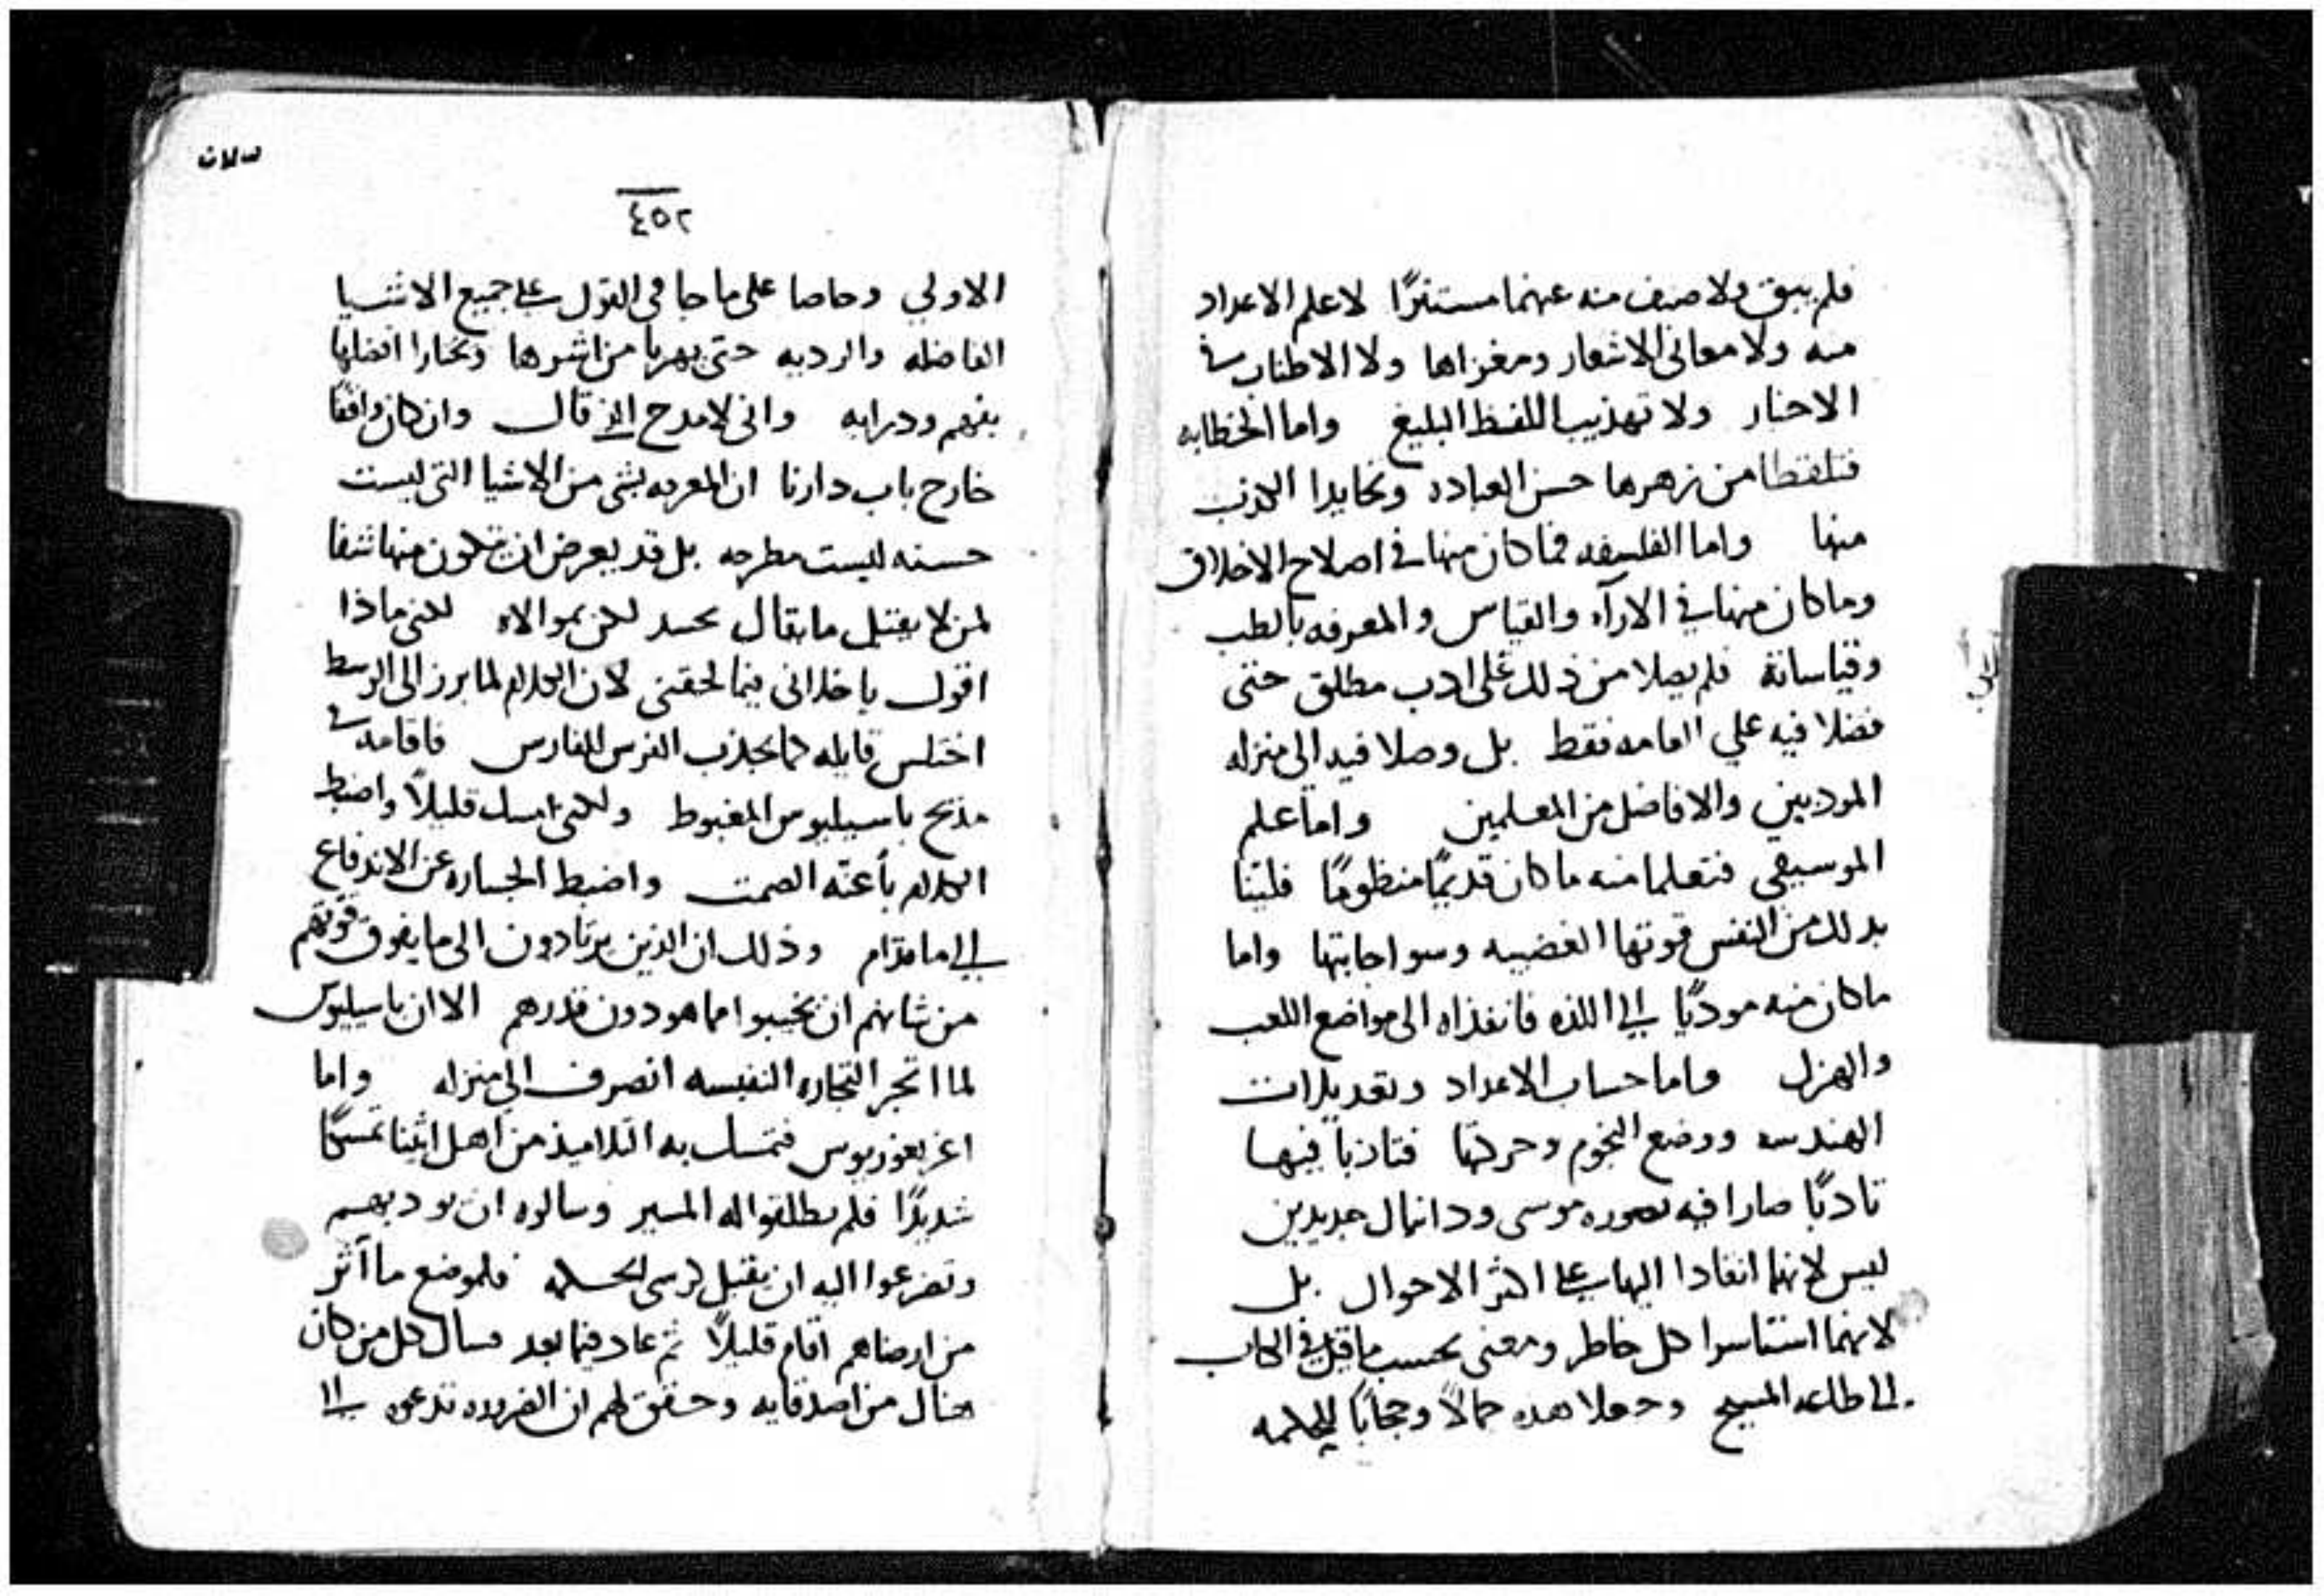 فلم يبق ولا صنف منه عنهما مستترًا لا علم الاعداد
منه ولا معاني الاشعار ومغزاها ولا الاطناب في
الاخبار ولا تهذيب اللفظ البليغ واما الخطابه
فتلقطا من زهرها حسن العباده وتحايدا الكذب
منها واما الفلسفه فما كان منها في اصلاح الاخلاق
وما كان منها في الارآء والقياس والمعرفه بالطب
وقياساته فلم يصلا من ذلك على ادب مطلق حتى
فضلا فيه علي العامه فقط بل وصلا فيه الى منزله
المودبين والافاضل من المعلمين واما علم
الموسيقي فتعلما منه ما كان قديمًا منظومًا فلينا
بذلك من النفس قوتها الغضبيه وسو اجابتها واما
ما كان منه موديًا الي اللذه فانفذاه الى مواضع اللعب
والهزل واما حساب الاعداد وتعديلات
الهندسه ووضع النجوم وحركتها فتادبا فيها
تادبًا صارا فيه بصوره موسى ودانيال جديدين
ليس لانهما انقادا اليها على اكثر الاحوال بل
لانهما استاسرا كل خاطر ومعنى بحسب ما قيل في الكتاب
الي طاعه المسيح وجعلا هذه جمالًا وحجابًا للحكمه
٤٥٢
الاولي وحاصا على ما جا في القول على جميع الاشيا
الفاضله والرديه حتى يهربا من اشرها ويختارا افضلها
بفهم ودرايه واني لامدح الذي قال وان كان واقفًا
خارج باب دارنا ان المعرفه بشي من الاشيا التي ليست
حسنه ليست مطرحه بل قد يعرض ان تكون منها شفا
لمن لا يقتبل ما يقال بحسد لكن بموالاه لكني ماذا
اقول يا خلاني فيما لحقني لان الكلام لما برز الى الوسط
اختلس قايله كما يجذب الفرس للفارس فاقامه في
مديح باسيليوس المغبوط ولكني امسك قليلًا واضبط
الكلام باعنّه الصمت واضبط الجساره عن الاندفاع
الي امام وذلك ان الذين يرتادون الى ما يفوق قوتهم
من شانهم ان يخيبوا مما هو دون قدرهم الا ان باسيليوس
لما اتجر التجاره النفيسه انصرف الي منزله واما
اغريغوريوس فتمسك به التلاميذ من اهل اثينا تمسكًا
شديدًا فلم يطلقوا له المسير وسالوه ان يودبهم
وتضرعوا اليه ان يقبل كرسي الحكمه فلموضع ما آثر
من ارضاهم اقام قليلًا ثم عاد فيما بعد فسال كل من كان
هناك من اصدقايه وحقق لهم ان الضروره تدعوه الي